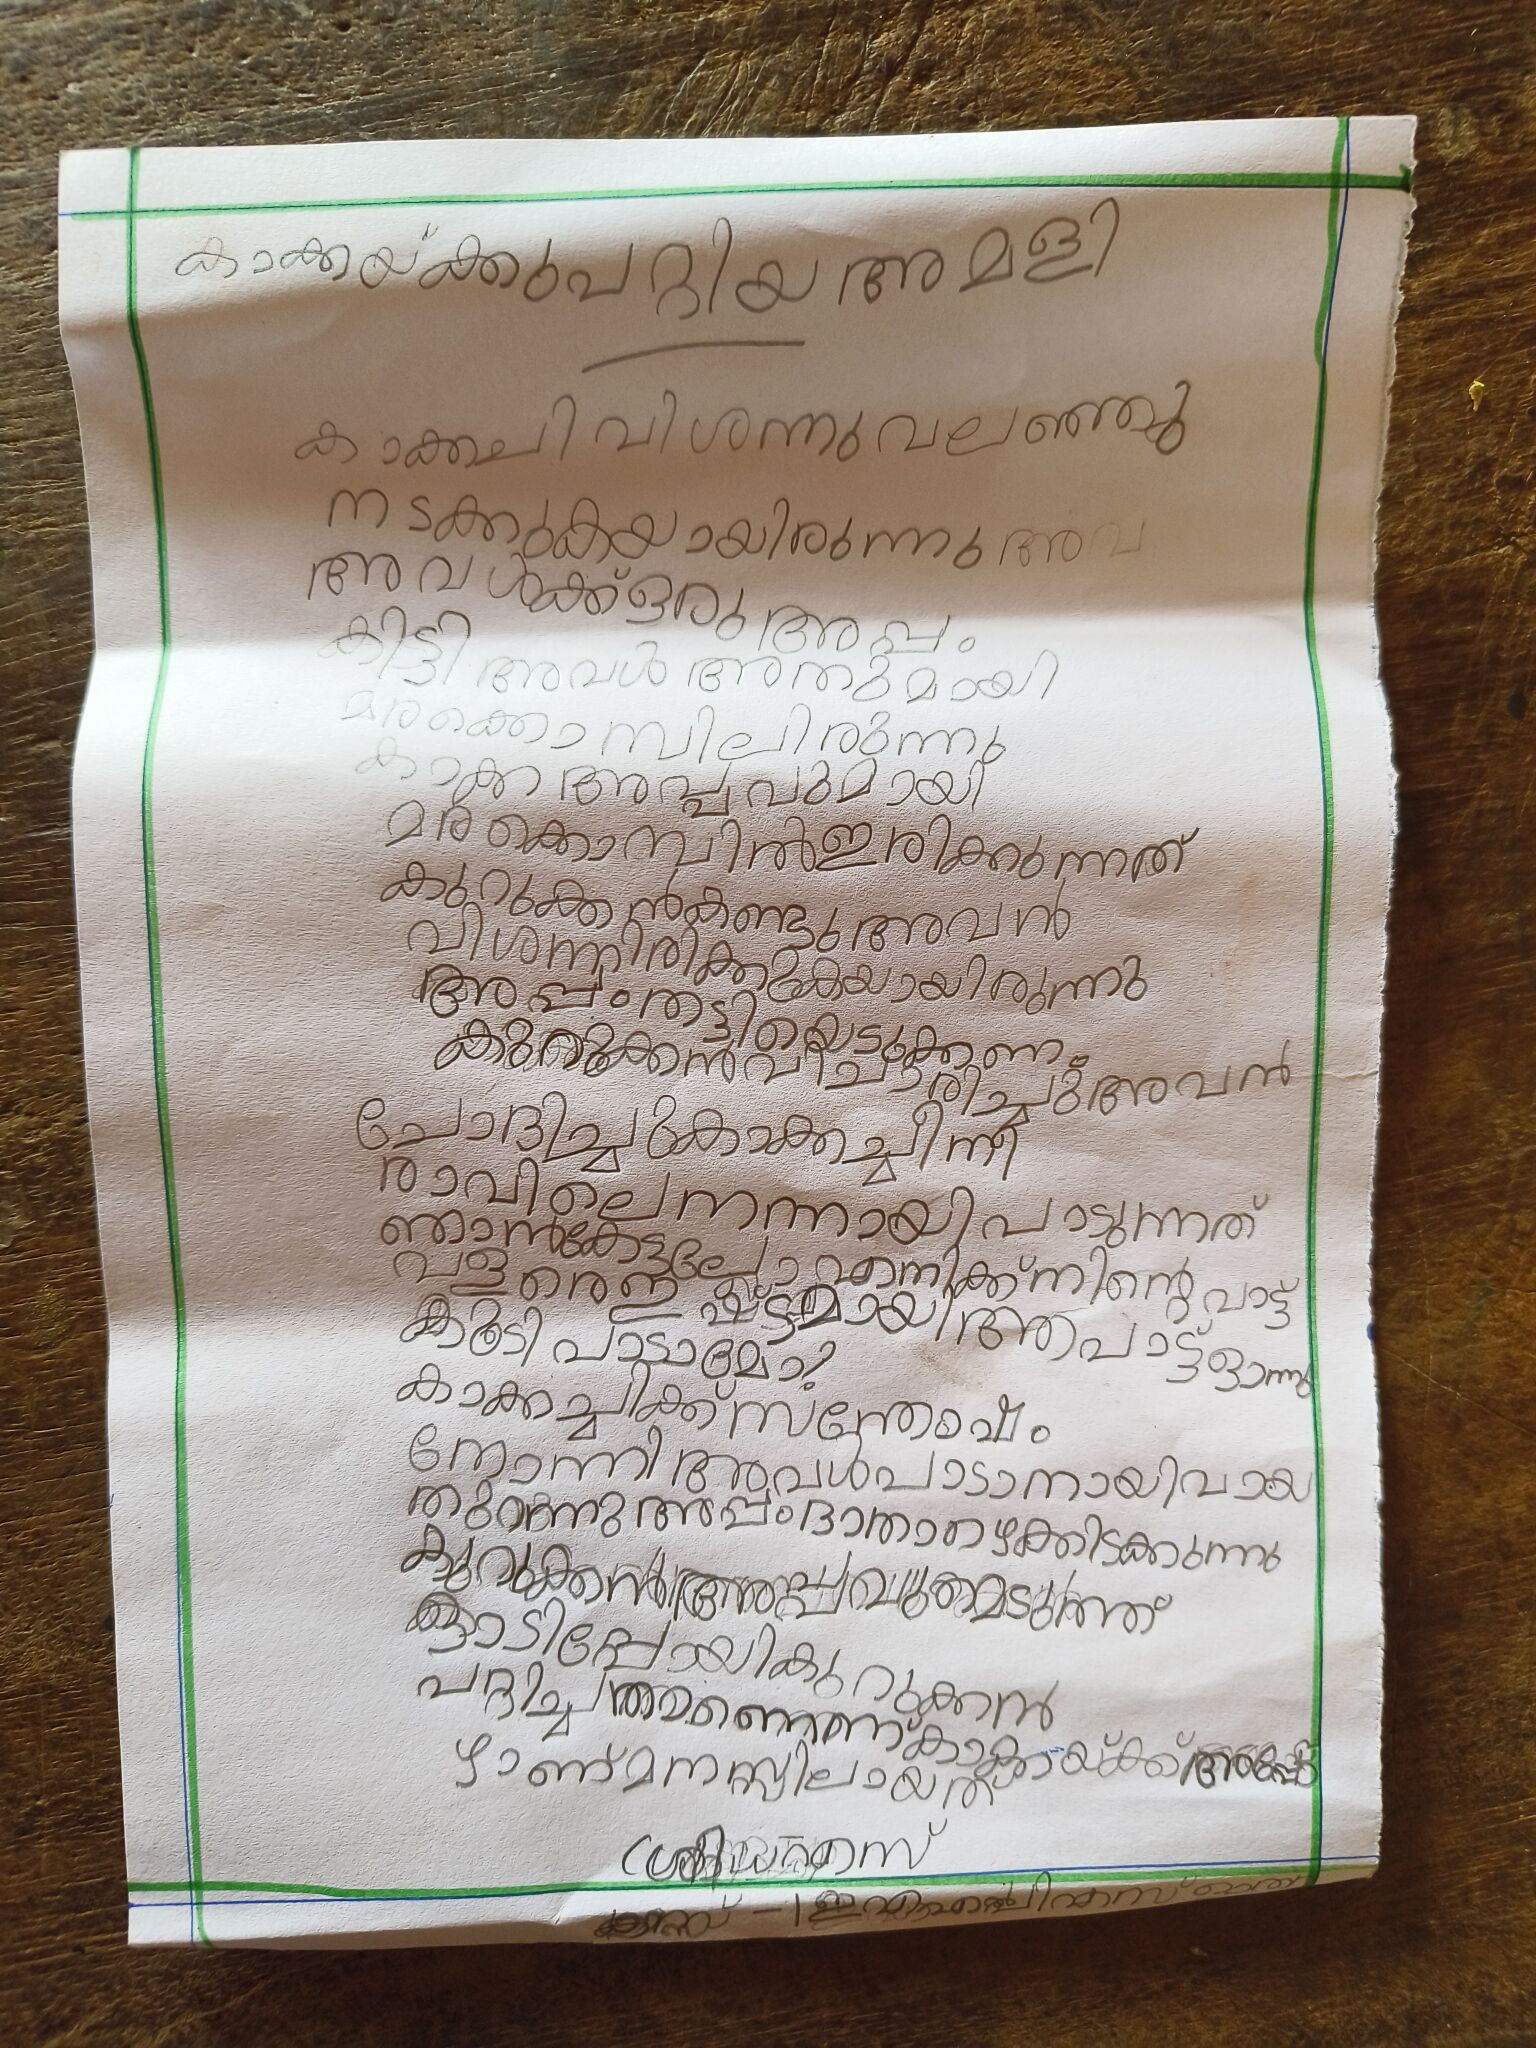 കാക്കയ്ക്കുപറ്റിയ അമളി
കാക്കചി വിശന്നുവലഞ്ഞു
നടക്കുകയായിരുന്നു അവ
അവൾക്ക്ഒരു അപ്പം
കിട്ടി അവൾ അതുമായി
മരക്കൊമ്പിലിരുന്നു
കാക്ക അപ്പവുമായി
മരക്കൊമ്പിൽഇരിക്കുന്നത്
കുറുക്കൻകണ്ടുഅവൻ
വിശന്നിരിക്കുകയായിരുന്നു
അപ്പംതട്ടിയെടുക്കണം
കുറുക്കൻവിചാരിച്ചുഅവൻ
ചോദിച്ചുകാക്കച്ചീനീ
രാവിലെനന്നായിപാടുന്നത്
ഞാൻകേട്ടല്ലോഎനിക്ക്നിന്റെപാട്ട്
വളരെഇഷ്ടമായിആപാട്ട്ഒന്നു
കൂടിപാടാമോ?
കാക്കച്ചിക്ക്സന്തോഷം
തോന്നിഅവൾപാടാനായിവായ
തുറന്നുഅപ്പംദാതാഴെക്കിടക്കുന്നു
കുറുക്കൻഅപ്പവുമെടുത്ത്
ഓടിപ്പോയികുറുക്കൻ
പറ്റിച്ചതാണെന്ന്കാക്കയ്ക്ക്അപ്പോ
ഴാണ്മനസ്സിലായത്